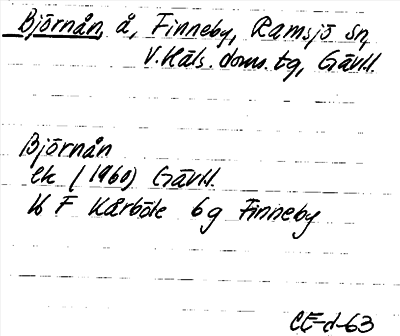 Björnån, å, Finneby, Ramsjö sn,
V. Häls. doms. tg, Gävl.
Björnån
ek (1960) Gävl.
16 F Kårböle 6g Finneby
CE-d-63